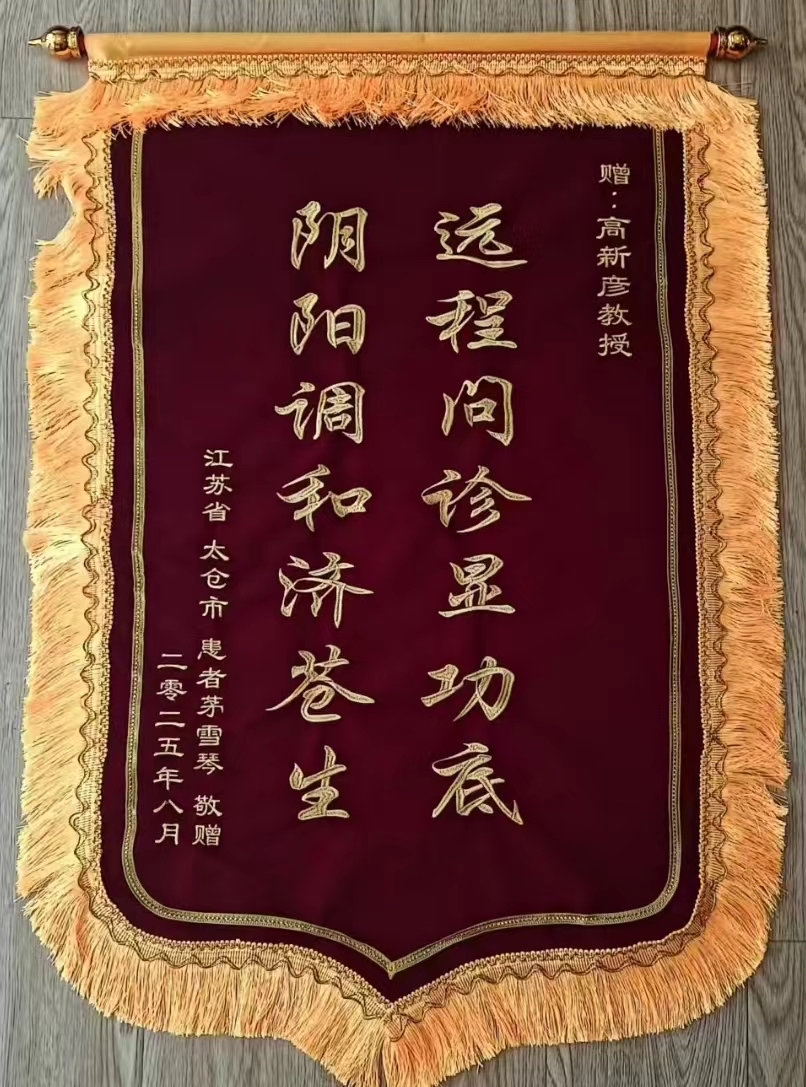 赠：高新彦教授
远程问诊显功底
阴阳调和济苍生
江苏省 太仓市 患者茅雪琴 敬赠
二零二五年八月